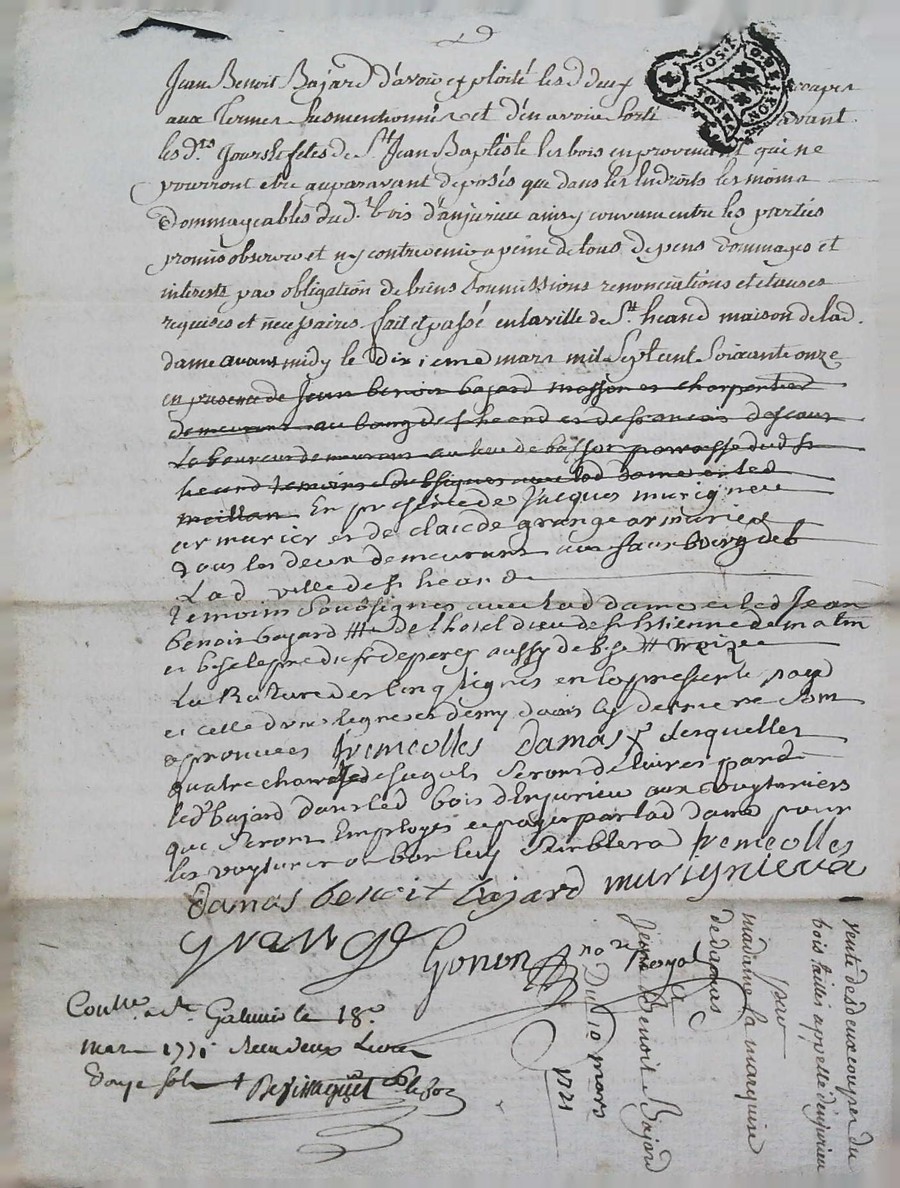 Jean Benoit Bajard d'avoir exploité lesd deux coupes
aux termes susmentionnés et d'en avoir sorti avant
les d.ts jours de fetes de St Jean Baptiste les bois en provenant qui ne
pourront etre auparavant deposés que dans les endroits les moins
dommageables dud.t bois d'anjurieu ainsy convenu entre les parties
promis observer et n'y contrevenir a peine de tous depens dommages et
interets par obligation de biens soumissions renonciations et clauses
requises et necessaires fait et passé en la ville de St heand maison de lad.
dame avant midy le dixieme mars mil sept cent soixante onze
en presence de Jean benoit bajard masson et charpentier
demeurant au bourg de st heand et de francois
Laboureur demeurant au lieu de parroisse dud st
heand temoins soussignes avec lad dame et led
En presence de Jacques murigneu
armurier et de claude grange armurier
tous les deux demeurant au faux bourg de
Lad ville de st heand
temoins soussignes avec lad dame et led Jean
benoit bajard de l'hotel dieu de st Etienne
La Rature des cinq lignes en la presente page
et celle d'une ligne et demy dans la derniere sont
aprouvees fremeolles Damas desquelles
quatre seront delivres par
led bajard dans led bois d'Enjurieu aux voyturiers
que seront Employes et payés par lad dame pour
les voyturer ou bon luy semblera fremeolles
Damas benoit bajard murignieux
grange
Gonon nore Royal
Coulle a St Galmier le 18e
mars 1771 Receu deux Livres
douze sols
vente des deux coupes du
bois taillis appellé d'enjurieu
par
madame la marquise
de damas
a
Jean Benoit Bajard
Du 10 mars
1771